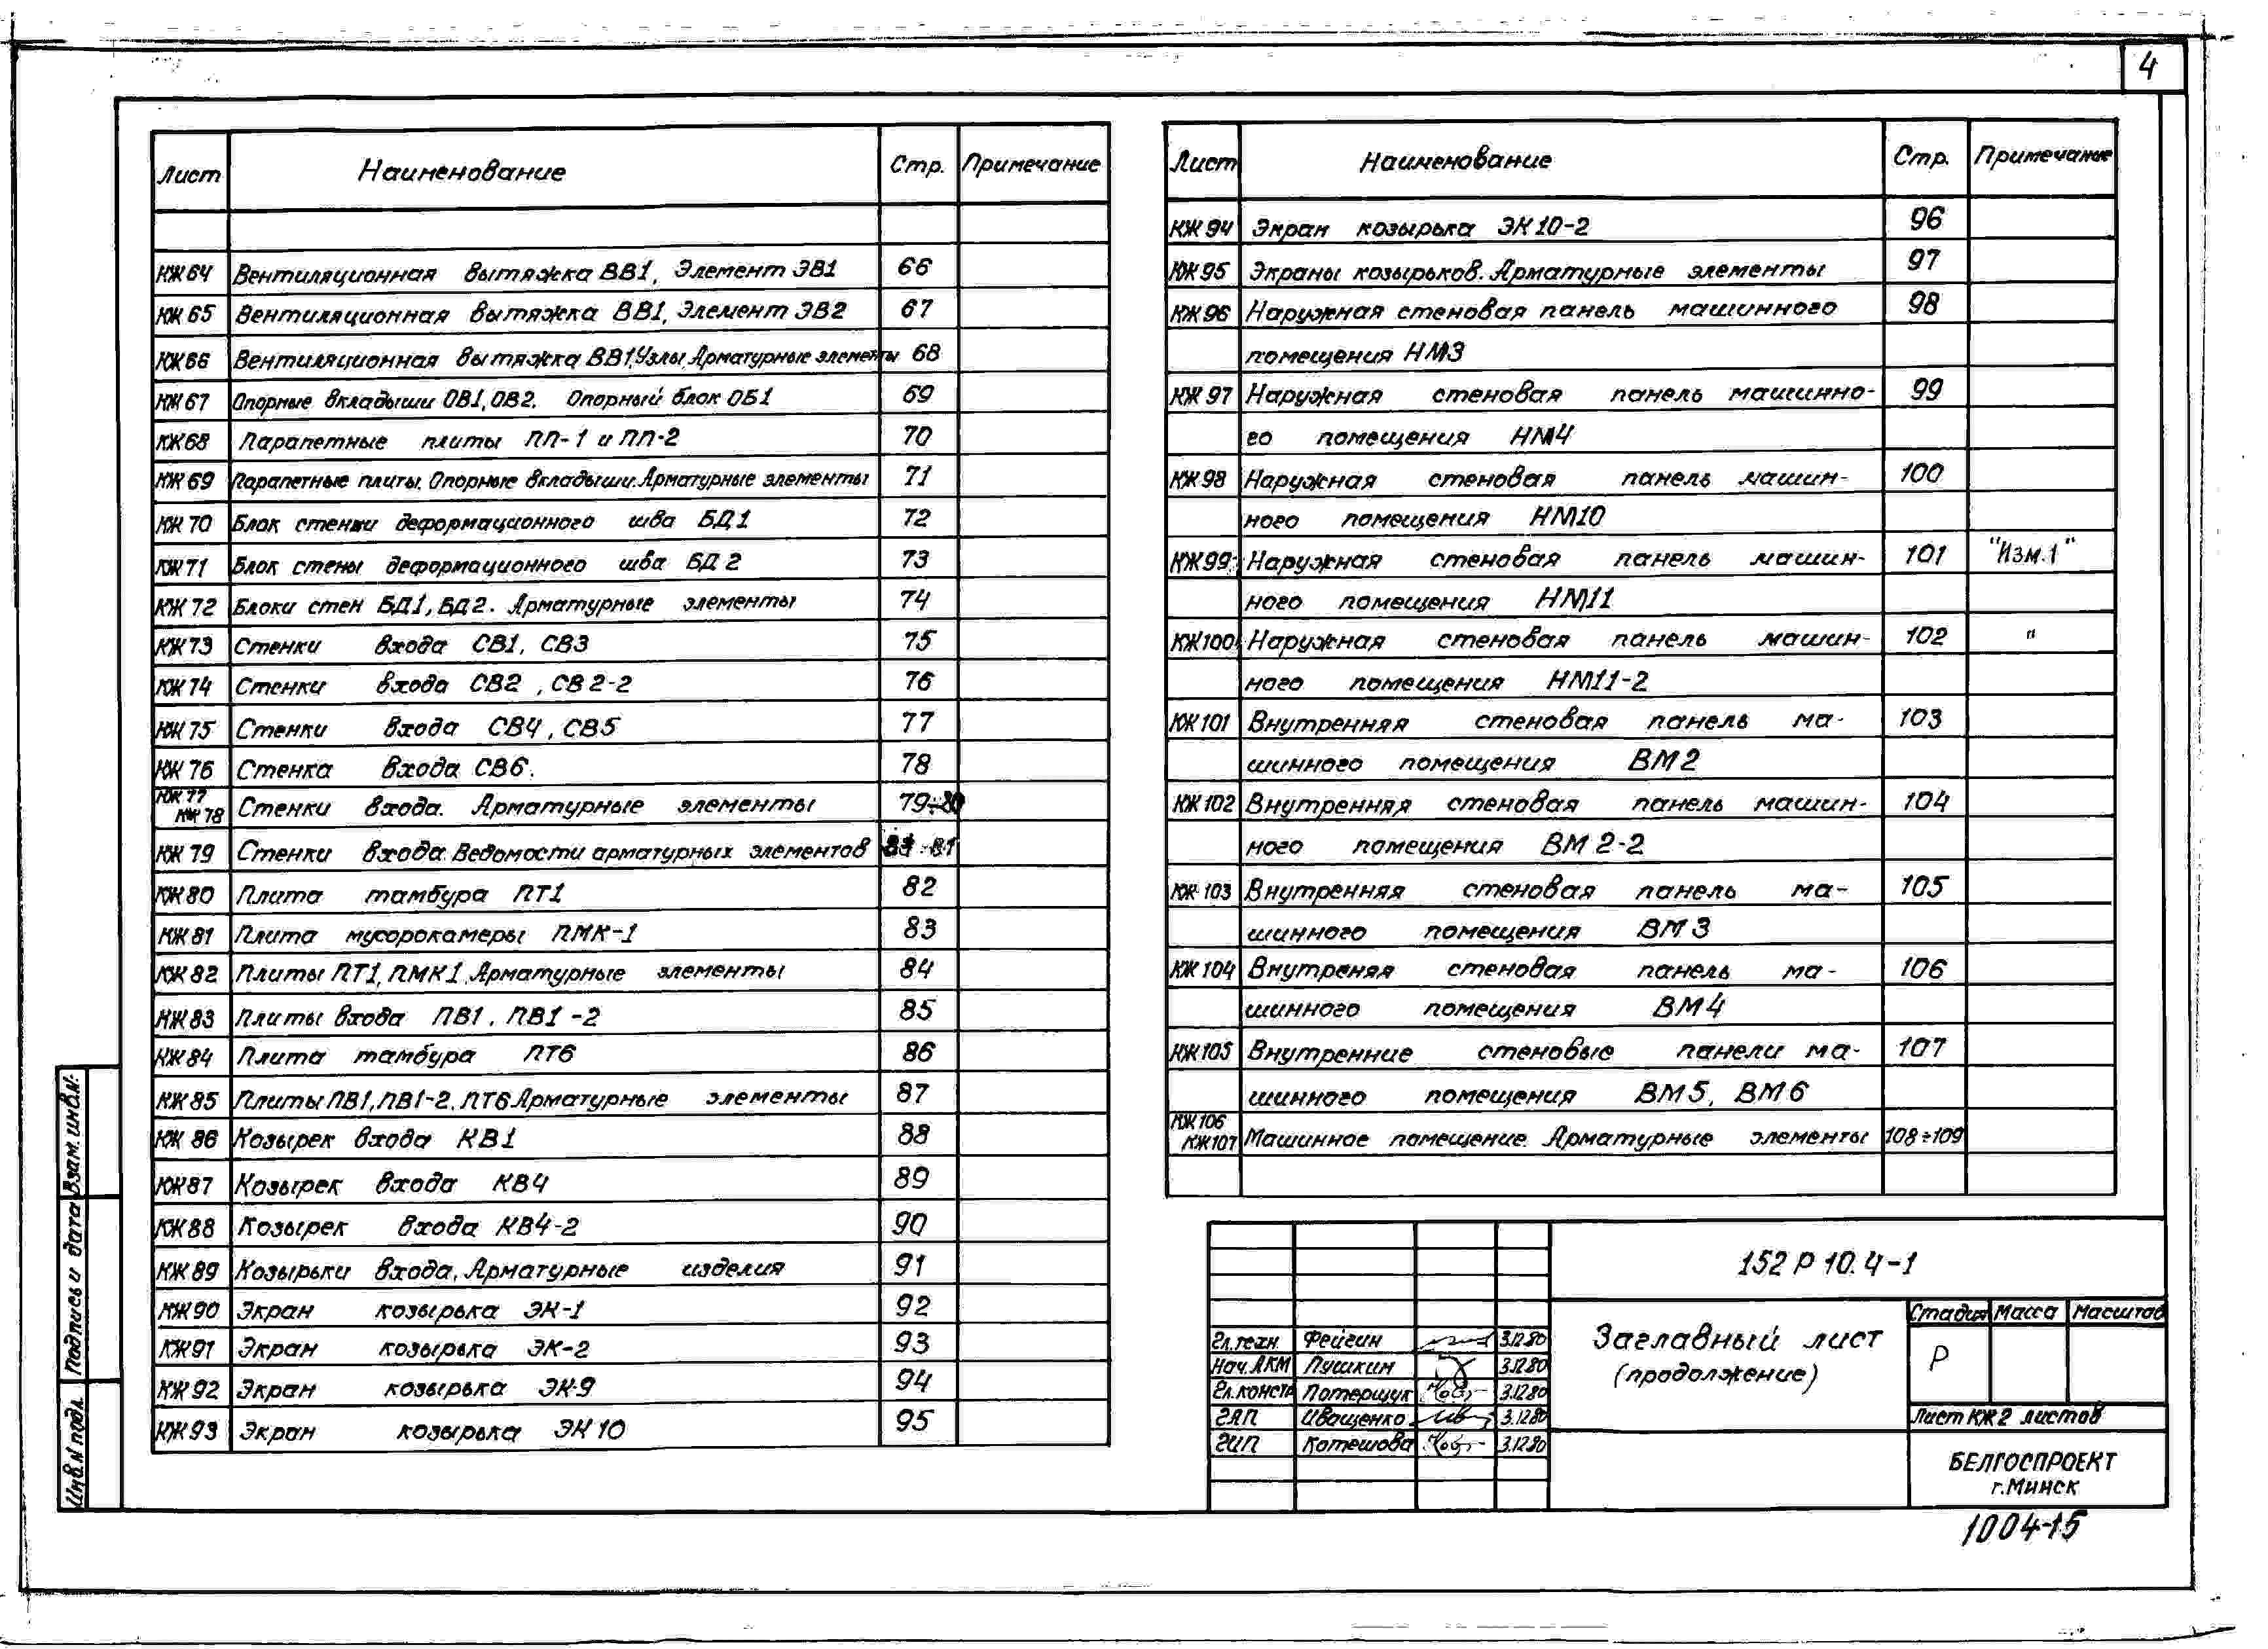 4
Лист Наименование Стр. Примечание
КЖ64 Вентиляционная вытяжка ВВ1, Элемент ЭВ1 66
КЖ65 Вентиляционная вытяжка ВВ1, Элемент ЭВ2 67
КЖ66 Вентиляционная вытяжка ВВ1, Узлы, Арматурные элементы 68
КЖ67 Опорные вкладыши ОВ1, ОВ2. Опорный блок ОБ1 69
КЖ68 Парапетные плиты ПП-1 и ПП-2 70
КЖ69 Парапетные плиты. Опорные вкладыши. Арматурные элементы 71
КЖ70 Блок стенки деформационного шва БД1 72
КЖ71 Блок стены деформационного шва БД2 73
КЖ72 Блоки стен БД1, БД2. Арматурные элементы 74
КЖ73 Стенки входа СВ1, СВ3 75
КЖ74 Стенки входа СВ2, СВ2-2 76
КЖ75 Стенки входа СВ4, СВ5 77
КЖ76 Стенка входа СВ6. 78
КЖ77 КЖ78 Стенки входа. Арматурные элементы 79÷80
КЖ79 Стенки входа. Ведомости арматурных элементов 81
КЖ80 Плита тамбура ПТ1 82
КЖ81 Плита мусорокамеры ПМК-1 83
КЖ82 Плиты ПТ1, ПМК1. Арматурные элементы 84
КЖ83 Плиты входа ПВ1, ПВ1-2 85
КЖ84 Плита тамбура ПТ6 86
КЖ85 Плиты ПВ1, ПВ1-2, ПТ6 Арматурные элементы 87
КЖ86 Козырек входа КВ1 88
КЖ87 Козырек входа КВ4 89
КЖ88 Козырек входа КВ4-2 90
КЖ89 Козырьки входа. Арматурные изделия 91
КЖ90 Экран козырька ЭК-1 92
КЖ91 Экран козырька ЭК-2 93
КЖ92 Экран козырька ЭК-9 94
КЖ93 Экран козырька ЭК10 95
Лист Наименование Стр. Примечание
КЖ94 Экран козырька ЭК10-2 96
КЖ95 Экраны козырьков. Арматурные элементы 97
КЖ96 Наружная стеновая панель машинного 98
помещения НМ3
КЖ97 Наружная стеновая панель машинно- 99
го помещения НМ4
КЖ98 Наружная стеновая панель машин- 100
ного помещения НМ10
КЖ99 Наружная стеновая панель машин- 101 "Изм.1"
ного помещения НМ11
КЖ100 Наружная стеновая панель машин- 102 "
ного помещения НМ11-2
КЖ101 Внутренняя стеновая панель ма- 103
шинного помещения ВМ2
КЖ102 Внутренняя стеновая панель машин- 104
ного помещения ВМ2-2
КЖ103 Внутренняя стеновая панель ма- 105
шинного помещения ВМ3
КЖ104 Внутреняя стеновая панель ма- 106
шинного помещения ВМ4
КЖ105 Внутренние стеновые панели ма- 107
шинного помещения ВМ5, ВМ6
КЖ106 КЖ107 Машинное помещение. Арматурные элементы 108÷109
152 Р 10.4-1
Заглавный лист
(продолжение)
Стадия Масса Масштаб
Р
Лист КЖ2 листов
БЕЛГОСПРОЕКТ
г.Минск
Гл.техн. Фейгин 3.12.80
Нач.АКМ Пушкин 3.12.80
Гл.констр Потерщук 3.12.80
ГАП Иващенко 3.12.80
ГИП Котешова 3.12.80
1004-15
Взам. инв.N
Подпись и дата
Инв.N подл.